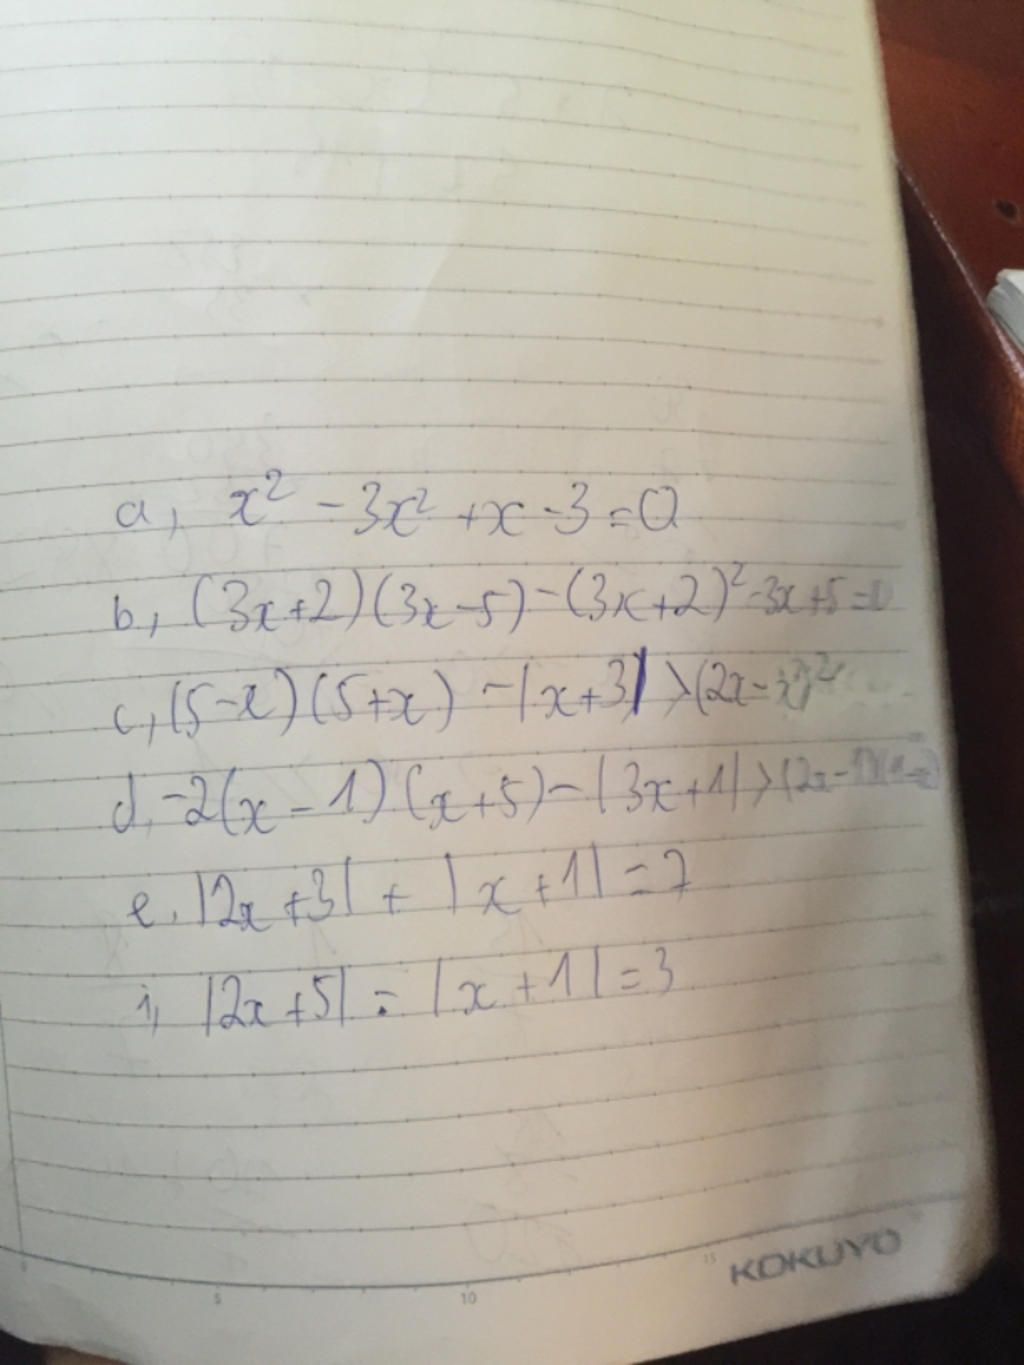 a, x² - 3x² + x - 3 = 0
b, (3x+2)(3x-5) - (3x+2)² - 3x+5 = 0
c, (5-x)(5+x) - |x+3| > (2x-
d, -2(x-1)(x+5) - |3x+1| > (2x-
e. |2x+3| + |x+1| = 7
i, |2x+5| = |x+1| = 3
5 10 15
KOKUYO